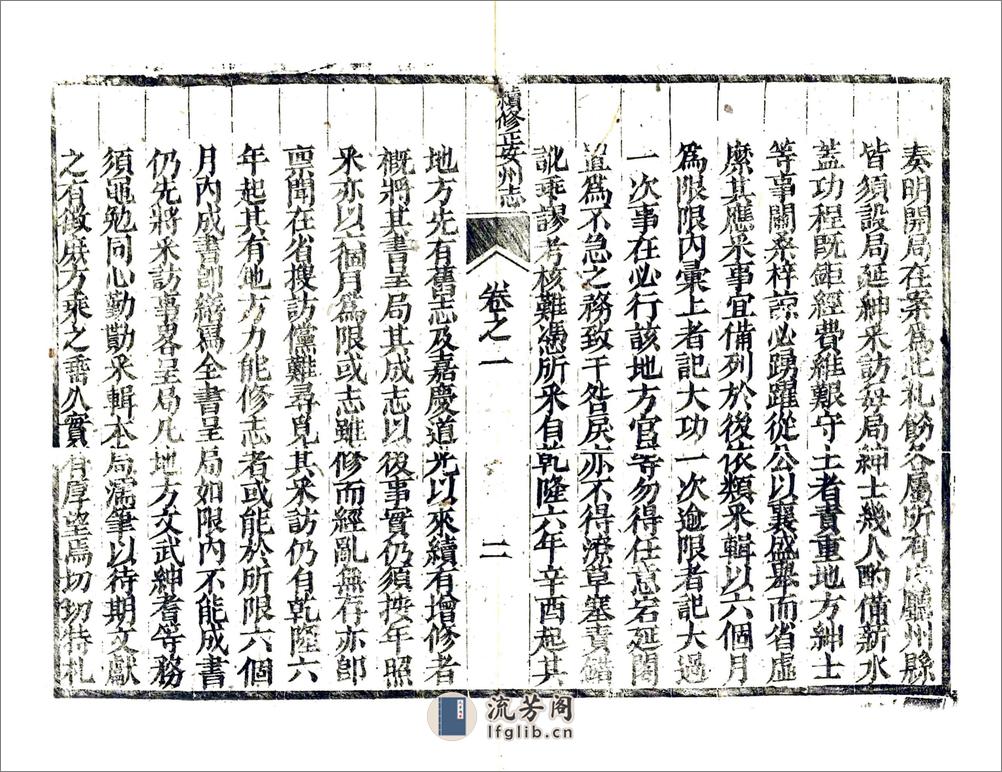 奏明開局在案爲此札飭各屬所有廳州縣
皆須設局延紳采訪每局紳士幾人酌備薪水
蓋功程既鉅經費維艱守土者責重地方紳士
等事關桑梓諒必踴躍從公以襄盛舉而省虛
縻其應采事宜備列於後依類采輯以六個月
爲限限内彙上者記大功一次逾限者記大過
一次事在必行該地方官等勿得任意宕延閣
置爲不急之務致干咎戾亦不得潦草塞責錯
訛乖謬考核難憑所采自乾隆六年辛酉起其
續修正安州志
卷之一
二
地方先有舊志及嘉慶道光以來續有增修者
概將其書呈局其成志以後事實仍須按年照
采亦以六個月爲限或志雖修而經亂無存亦卽
禀聞在省搜訪儻難尋見其采訪仍自乾隆六
年起其有地方力能修志者或能於所限六個
月内成書卽繕爲全書呈局如限内不能成書
仍先將采訪事畧呈局凡地方文武紳耆等務
須黽勉同心勤勷采輯本局濡筆以待期文獻
之有徵庶方乘之垂久實有厚望焉切切特札
流芳阁
lfglib.cn